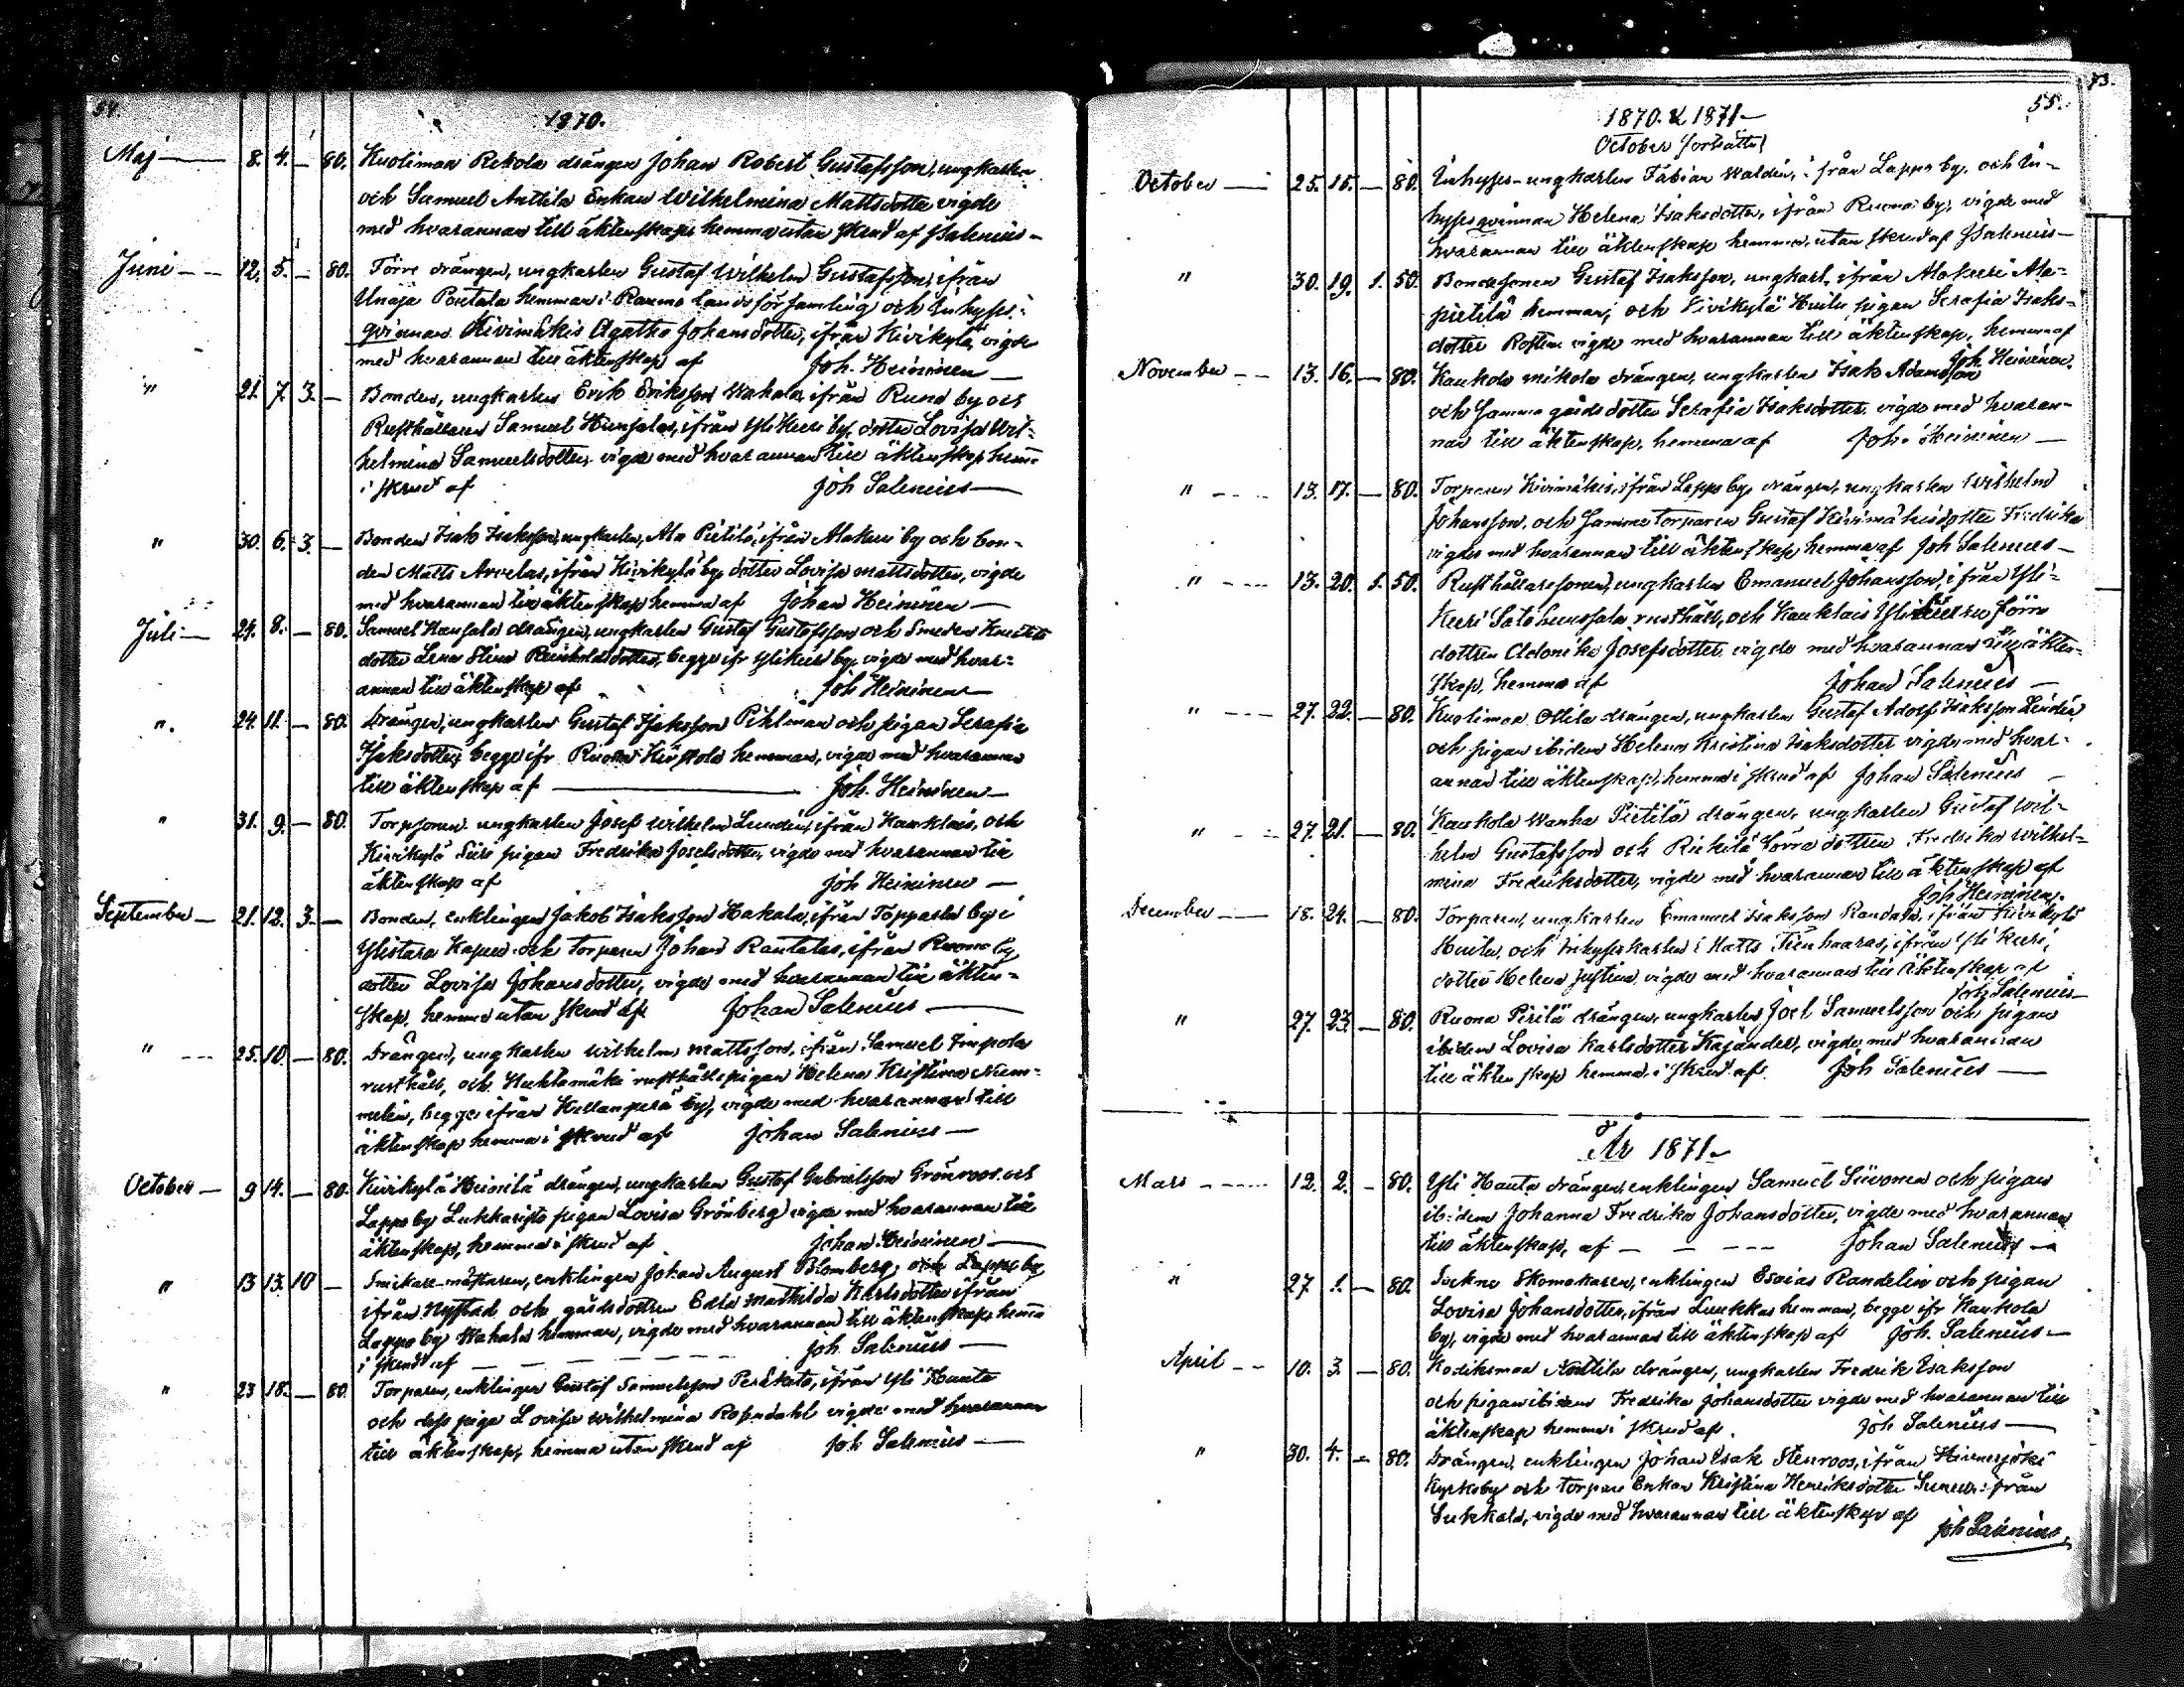 54.
1870.
Maj 8. 4. — 80. Kuolimaa Rekola drängen Johan Robert Gustafsson, ungkarlen
och Samuel Anttila Enkan Wilhelmina Mattsdotter vigde
med hvarannan till äktenskaps hemma utan skrud af JSalenius —
Juni — 12. 5. — 80. Torre drängen, ungkarlen Gustaf Wilhelm Gustafsson, ifrån
Unaja hemman i Raumo landsförsamling och Inhyses-
qvinnan Kivimäkis Agatha Johansdotter, ifrån Kivikylä, vigde
med hvarannan till äktenskap af Joh. Heininen —
" 21. 7. 3. — Bonden, ungkarlen Erik Eriksson Wahala, ifrån by och
Rusthållaren Samuel Hunsalas, ifrån Yli Kieri by, dotter Lovisa Wil-
helmina Samuelsdotter, vigde med hvarannan till äktenskap hemma
i skrud af Joh Salenius —
" 30. 6. 3. — Bonden Isak Isaksson, ungkarlen, Ala Pietilä, ifrån by och bon-
den Matts Arvelas, ifrån Kivikylä by, dotter Lovisa Mattsdotter, vigde
med hvarannan till äktenskap hemma af Johan Heininen —
Juli — 24. 8. — 80. Samuel drängen, ungkarlen Gustaf Gustafsson och Smeden
dotter Lena Stina Reinholdsdotter, begge ifr by, vigde med hvar-
annan till äktenskap af Joh Heininen —
". 24. 11. — 80. Drängen, ungkarlen Gustaf Isaksson Pihlman och pigan Serafia
Isaksdotter, begge ifr Ruona hemman, vigde med hvarannan
till äktenskap af — Joh. Heininen —
" 31. 9. — 80. Torpsonen ungkarlen Josef Wilhelm Lundén, ifrån Kauklais, och
Kivikylä pigan Fredrika Josefsdotter, vigde med hvarannan till
äktenskap af Joh Heininen —
September — 21. 12. 3. — Bonden, enklingen Jakob Isaksson Hakala, ifrån by i
Ylistaro Kapell och torparen Johan Rantalas, ifrån Ruona by
dotter Lovisa Johansdotter, vigde med hvarannan till äkten-
skap, hemma utan skrud af Johan Salenius —
" --- 25. 10. — 80. Drängen, ungkarlen Wilhelm Mattsson, ifrån Samuel
rusthåll, och Huhtamäki rusthålls pigan Helena Kristina
begge ifrån Kullanperä by, vigde med hvarannan till
äktenskap hemma i skrud af Johan Salenius —
October — 9 14. — 80. Kivikylä Heinilä drängen, ungkarlen Gustaf Gabrielsson Grönroos och
Lappo by pigan Lovisa Grönberg vigde med hvarannan till
äktenskap, hemma i skrud af Johan Heininen —
" 13 13. 10 — Snickare-mästaren, enklingen Johan August Blomberg,
ifrån Nystad och gårdsdottren Edla Mathilda Karlsdotter ifrån
Lappo by hemman, vigde med hvarannan till äktenskap, hemma
i skrud af — — Joh. Salenius —
" 23 18. — 80. Torparen, enklingen Gustaf Samuelsson ifrån Yli Hauta
och dess piga Lovisa Wilhelmina Rosendahl vigde med hvarannan
till äktenskap, hemma utan skrud af Joh Salenius —
73.
55.
1870. & 1871 —
October fortsättes
October — 25. 15. — 80. Inhyses-ungkarlen Fabian Waldén, ifrån Lappo by, och In-
hysesqvinnan Helena Isaksdotter, ifrån Ruona by, vigde med
hvarannan till äktenskap hemma, utan skrud af JSalenius —
" 30. 19. 1. 50. Bondesonen Gustaf Isaksson, ungkarl, ifrån Ala-
pietilä hemman, och Kivikylä Huilu pigan Serafia Isaks-
dotter vigde med hvarannan till äktenskap, hemma af
Joh. Heininen.
November — 13. 16. — 80. Kaukola Mikola drängen, ungkarlen Isak Adamsson
och samma gårds dotter Serafia Isaksdotter vigde med hvaran-
nan till äktenskap, hemma af Joh. Heininen —
" --- 13. 17. — 80. Torparen Kivimäkis, ifrån Lappo by, drängen, ungkarlen Wilhelm
Johansson, och samme torparen Gustaf Kivimäkis dotter Fredrika
vigdes med hvarannan till äktenskap, hemma af Joh Salenius —
" --- 13. 20. 1. 50. Rusthållaresonen, ungkarlen Emanuel Johansson, ifrån Yli-
Kieri rusthåll, och Kauklais
dottren Adonika Josefsdotter vigde med hvarannan till äkten-
skap, hemma af Johan Salenius —
" --- 27. 22. — 80. Kuolimaa Ottila drängen, ungkarlen Gustaf Adolf Isaksson Lindén
och pigan ibidem Helena Kristina Isaksdotter vigde med hvar-
annan till äktenskap, hemma i skrud af Johan Salenius —
" --- 27. 21. — 80. Kaukola Wanha Pietilä drängen, ungkarlen Gustaf Wil-
helm Gustafsson och dottren Fredrika Wilhel-
mina Fredriksdotter, vigde med hvarannan till äktenskap af
Joh Heininen.
December — 18. 24. — 80. Torparen, ungkarlen Emanuel Isaksson Randala, ifrån Kivikylä
Huilu, och Inhyseskarlen Matts ifrån Yli Kieri,
dotter Helena Justina, vigde med hvarannan till äktenskap af
Joh Salenius —
" 27. 23. — 80. Ruona Pirilä drängen, ungkarlen Joel Samuelsson och pigan
ibidem Lovisa Karlsdotter Kajander, vigde med hvarannan
till äktenskap hemma, i skrud af. Joh Salenius —
År 1871 —
Mars — 12. 2. — 80. Yli Hauta drängen, enklingen Samuel Siivonen och pigan
ibidem Johanna Fredrika Johansdotter, vigde med hvarannan
till äktenskap, af — — — Johan Salenius —
" 27. 1. — 80. Sockne Skomakaren, enklingen Esaias Randelin och pigan
Lovisa Johansdotter, ifrån Luukkas hemman, begge ifr Kaukola
by, vigde med hvarannan till äktenskap af Joh. Salenius —
April — 10. 3. — 80. Kodiksma Nottila drängen, ungkarlen Fredrik Isaksson
och pigan ibidem Fredrika Johansdotter vigde med hvarannan till
äktenskap hemma i skrud af. Joh Salenius —
" 30. 4. — 80. Drängen, enklingen Johan Isak Stenroos, ifrån Hinnerjoki
Kyrkoby och torpare Enkan Kristina Henriksdotter ifrån
Sukkala, vigde med hvarannan till äktenskap af Joh Salenius.